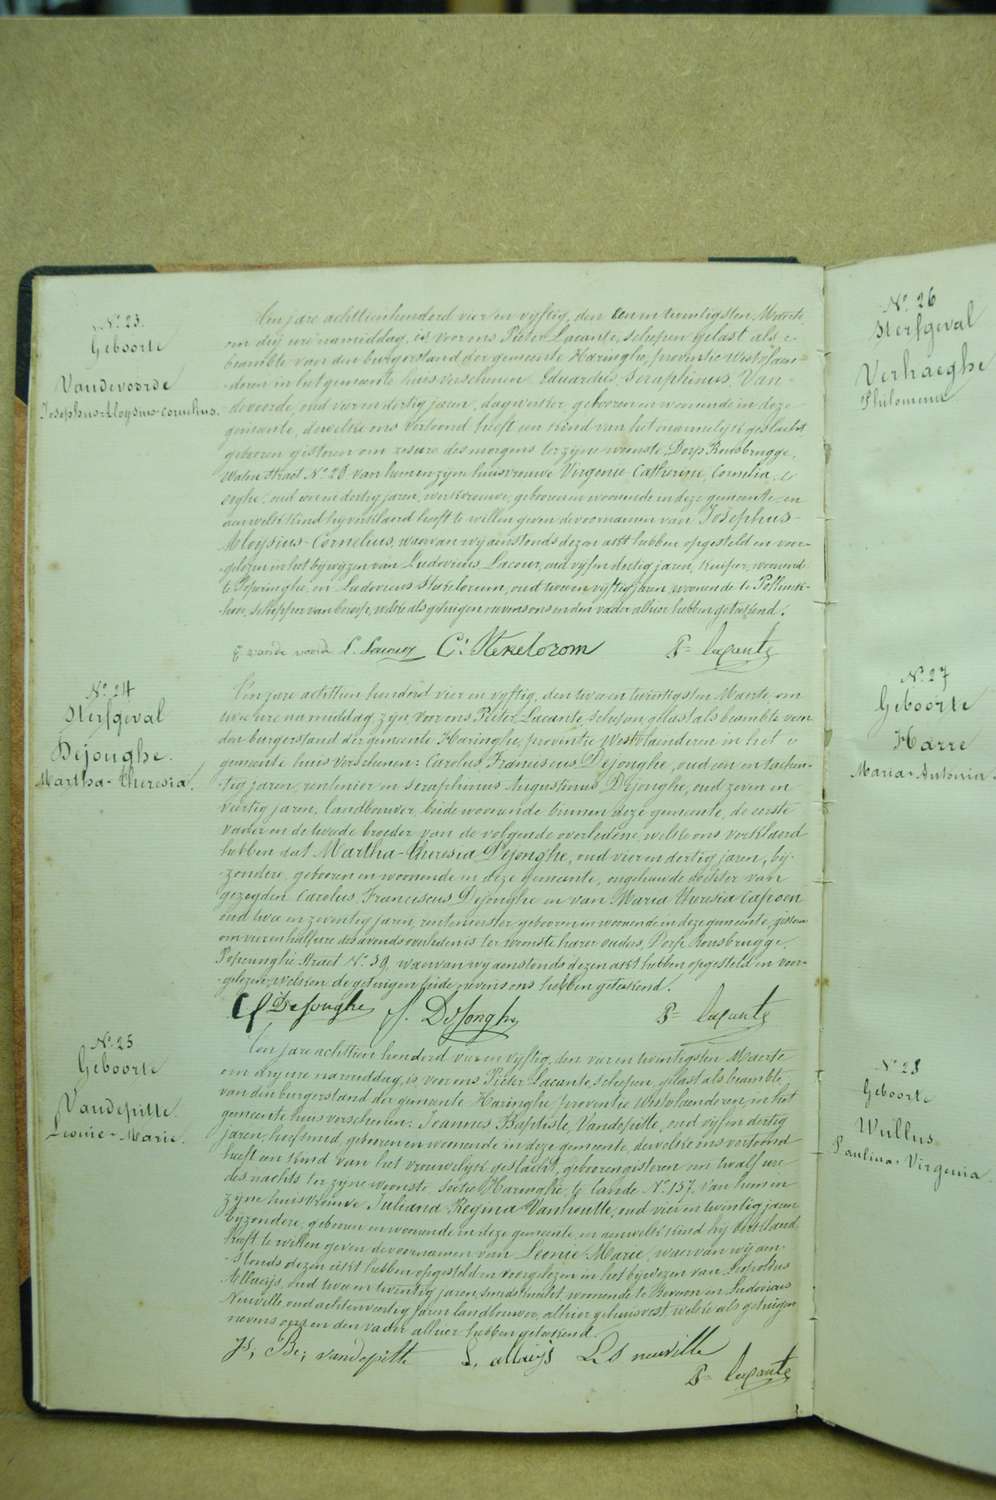 N.º 23.
Geboorte
Vandevoorde
Josephus-Aloysius-Cornelius.
Ten jare achttienhonderd vier en vyftig, den een en twintigsten Maerte
om dry ure namiddag, is voor ons Pieter Lacante, schepen gelast als
beambte van den burgerstand der gemeente Haringhe, provintie Westvlaen-
deren in het gemeente huis verschenen Eduardus, Seraphinus, Van-
devoorde, oud vier en dertig jaren, dagwerker, geboren en woonende in deze
gemeente, dewelke ons vertoond heeft een kind van het mannelyk geslacht
geboren gisteren om zes ure des morgens ter zyne woonste, Dorp Rousbrugge,
Water straet N.º 28 van hem en zyne huisvrouwe Virgenie, Catheryne, Cornelia,
oud een en dertig jaren, werkvrouwe, geboren en woonende in deze gemeente, en
aan welk kind hy verklaard heeft te willen geven de voornamen van Josephus-
Aloysius-Cornelius, waervan wy aenstonds dezen akt hebben opgesteld en voor-
gelezen in het bywezen van Ludovicus Lacour, oud vyf en dertig jaren, kuiper, woonende
te Poperinghe, en Ludovicus Stekelorum, oud twee en vyftig jaren, woonende te Pollinck-
hove, schepper van beroep, welke als getuigen nevens ons en den vader alhier hebben geteekend.
E vande voorde L. Lacour C.s Stekelorom P.r Lacante
N.º 24
Sterfgeval
Dejonghe.
Martha-theresia.
Ten jare achttien honderd vier en vyftig, den twee en twintigsten Maerte, om
twee ure namiddag, zyn voor ons Pieter Lacante, schepen, gelast als beambte van
den burgerstand der gemeente Haringhe, provintie Westvlaenderen in het
gemeente huis verschenen: Carolus Franciscus Dejonghe, oud een en tachen-
tig jaren, rentenier en Seraphinus Augustinus Dejonghe, oud zeven en
viertig jaren, landbouwer, beide woonende binnen deze gemeente, de eerste
vader en de tweede broeder van de volgende overledene, welke ons verklaerd
hebben dat Martha-theresia Dejonghe, oud vier en dertig jaren, by-
zondere, geboren en woonende in deze gemeente, ongehuwde dochter van
gezegden Carolus Franciscus Dejonghe en van Maria Theresia Capoen
oud twee en zeventig jaren, rentenierster, geboren en woonende in deze gemeente, gisteren
om vier en half ure des avonds overleden is ter woonste harer ouders, Dorp Rousbrugge,
Poperinghe Straet N.º 59, waervan wy aenstonds dezen akt hebben opgesteld en voor-
gelezen, welken de getuigen beide nevens ons hebben geteekend.
C F Dejonghe S. Dejonghe P.r Lacante
N.º 25
Geboorte
Vandepitte.
Leonie-Marie.
Ten jare achttien honderd vier en vyftig, den vier en twintigsten Maerte
om dry ure namiddag, is voor ons Pieter Lacante, schepen, gelast als beambte
van den burgerstand der gemeente Haringhe, provintie Westvlaenderen, in het
gemeente huis verschenen: Joannes Baptiste, Vandepitte, oud vyf en dertig
jaren, hoefsmid, geboren en woonende in deze gemeente, dewelke ons vertoond
heeft een kind van het vrouwelyk geslacht, geboren gisteren om twaelf ure
des nachts ter zyne woonste, sectie Haringhe, te lande N.º 157. van hem en
zyne huisvrouwe Juliana Regina Vanhoutte, oud vier en twintig jaren
byzondere, geboren en woonende in deze gemeente, en aen welk kind hy verklaard
heeft te willen geven de voornamen van Leonie-Marie, waervan wy aen-
stonds dezen akt hebben opgesteld en voorgelezen in het bywezen van Leopoldus
Allaeys, oud twee en twintig jaren, smidsknecht, woonende te Beveren en Ludovicus
Neuville, oud acht en veertig jaren landbouwer, alhier gehuisvest, welke als getuigen
nevens ons en den vader alhier hebben geteekend.
Js, Be; vandepitte L. allaeys L. S neuville
P.r Lacante
N.º 26
Sterfgeval
Verhaeghe
Philomena
N.º 27
Geboorte
Harre
Maria-Antonia-
N.º 28
Geboorte
Wullus
Paulina-Virginia.